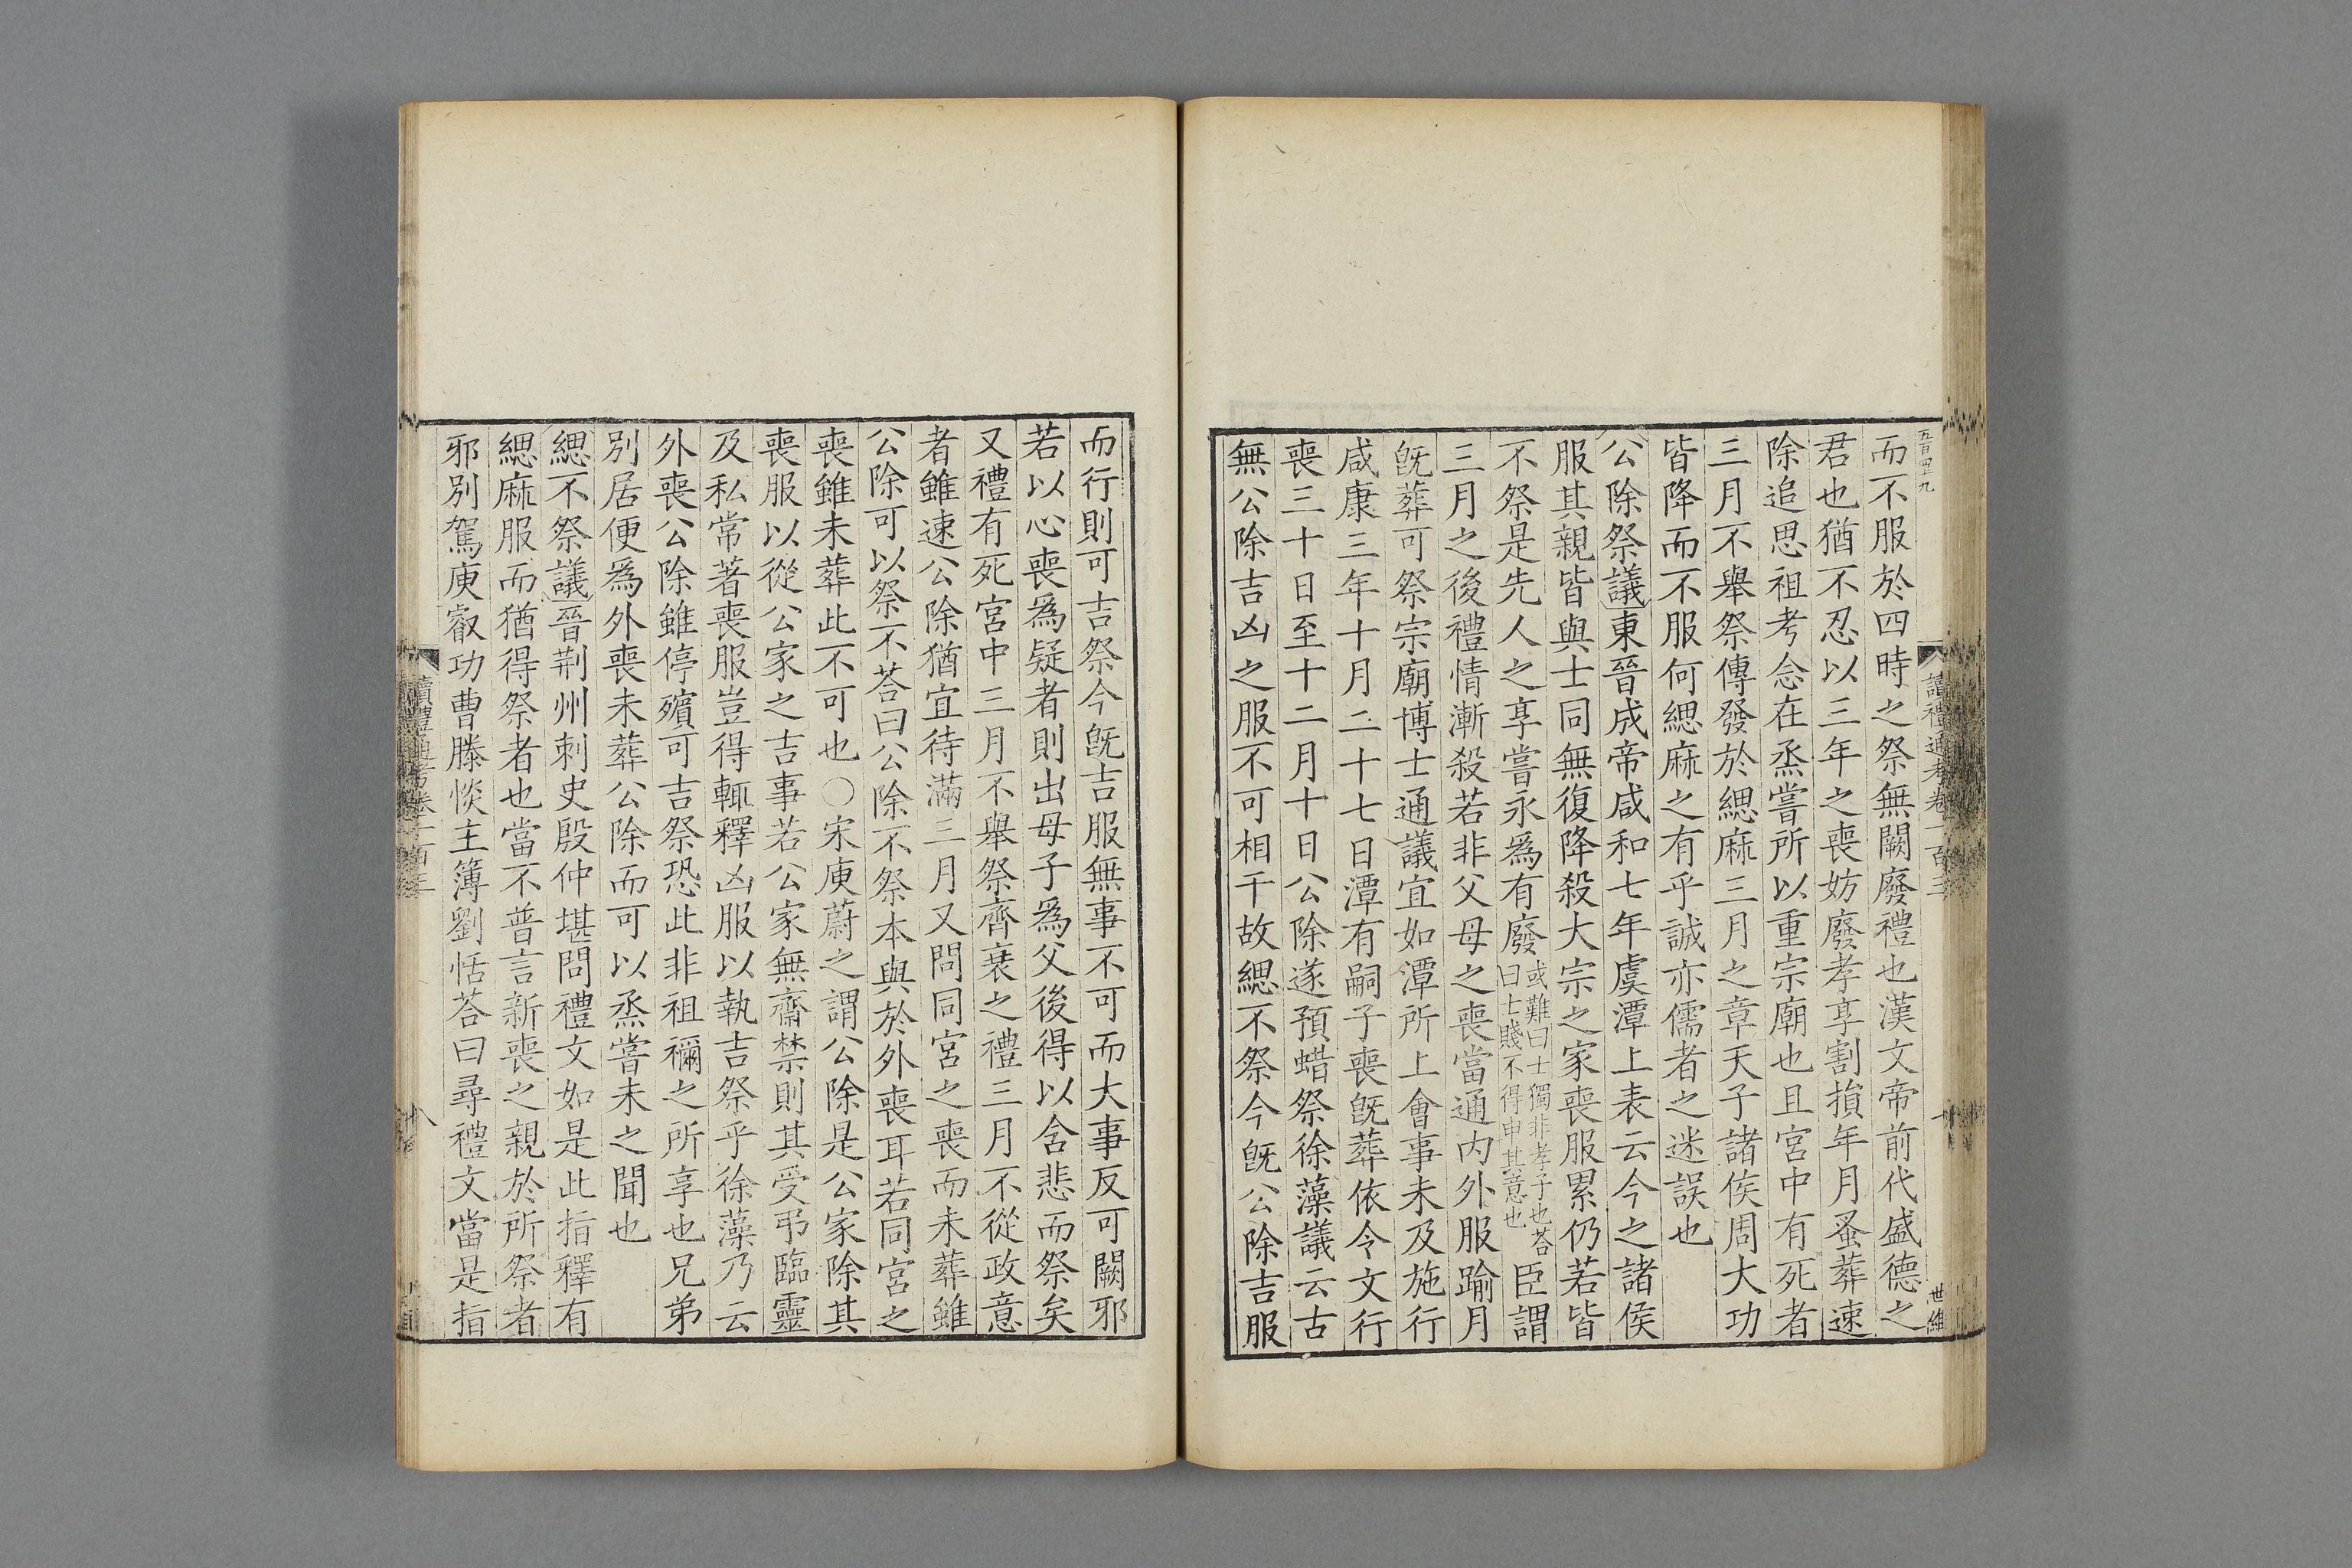 五百四九
讀禮通考卷一百三
世維
而不服於四時之祭無闕廢禮也漢文帝前代盛德之
君也猶不忍以三年之喪妨廢孝享割損年月蚤葬速
除追思祖考念在烝嘗所以重宗廟也且宮中有死者
三月不舉祭傳發於緦麻三月之章天子諸侯周大功
皆降而不服何緦麻之有乎誠亦儒者之迷誤也
公除祭議東晉成帝咸和七年虞潭上表云今之諸侯
服其親皆與士同無復降殺大宗之家喪服累仍若皆
不祭是先人之享嘗永爲有廢或難曰士獨非孝子也荅曰士賤不得申其意也臣謂
三月之後禮情漸殺若非父母之喪當通內外服踰月
旣葬可祭宗廟博士通議宜如潭所上會事未及施行
咸康三年十月二十七日潭有嗣子喪旣葬依令文行
喪三十日至十二月十日公除遂預蜡祭徐藻議云古
無公除吉凶之服不可相干故緦不祭今旣公除吉服
而行則可吉祭今旣吉服無事不可而大事反可闕邪
若以心喪爲疑者則出母子爲父後得以含悲而祭矣
又禮有死宮中三月不舉祭齊衰之禮三月不從政意
者雖速公除猶宜待滿三月又問同宮之喪而未葬雖
公除可以祭不荅曰公除不祭本與於外喪耳若同宮之
喪雖未葬此不可也○宋庾蔚之謂公除是公家除其
喪服以從公家之吉事若公家無齋禁則其受弔臨靈
及私常著喪服豈得輒釋凶服以執吉祭乎徐藻乃云
外喪公除雖停殯可吉祭恐此非祖禰之所享也兄弟
別居便爲外喪未葬公除而可以烝嘗未之聞也
緦不祭議晉荆州刺史殷仲堪問禮文如是此指釋有
緦麻服而猶得祭者也當不普言新喪之親於所祭者
邪別駕庾叡功曹滕惔主簿劉恬荅曰尋禮文當是指
讀禮通考卷一百三
八